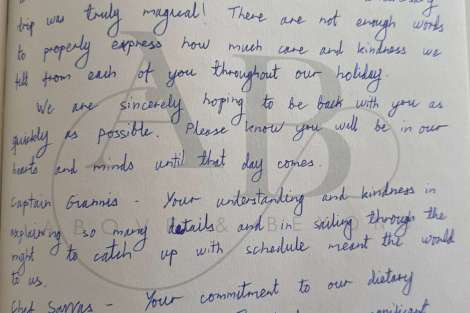 trip was truly magical! There are not enough words
to properly express how much care and kindness we
felt from each of you throughout our holiday.
We are sincerely hoping to be back with you as
quickly as possible. Please know you will be in our
hearts and minds until that day comes.
Captain Giannis - Your understanding and kindness in
explaining so many details and in sailing through the
night to catch up with schedule meant the would
to us.
Chef Savvas - Your commitment to our dietary
AB
ABOVE & BEYOND